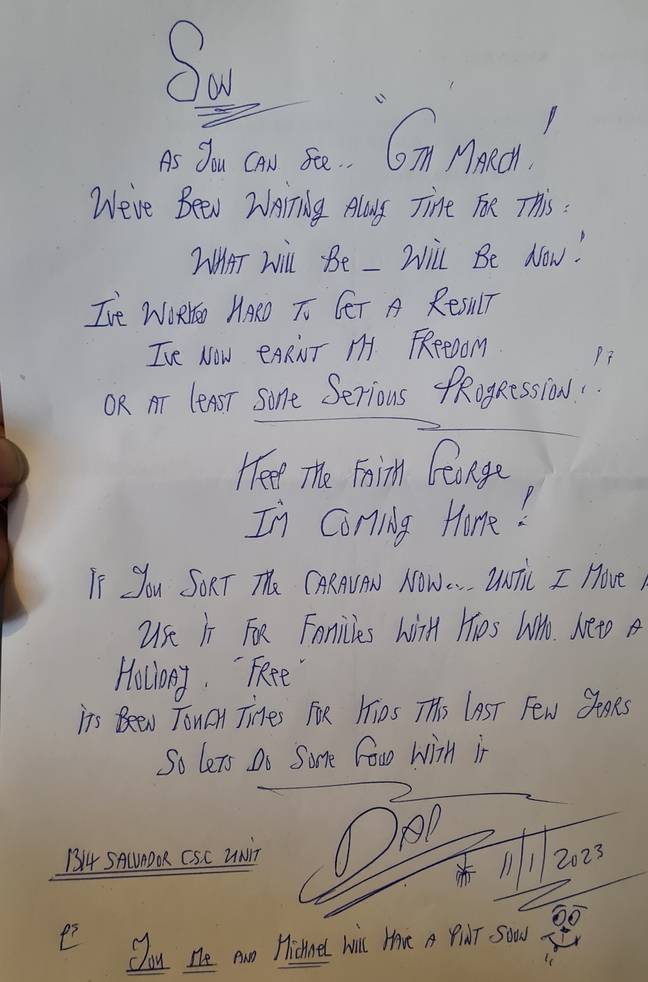 Son
As You CAN See.. "6TH MARCH!
We've Been Waiting Along Time For This:
What Will Be _ Will Be Now!
I've Worked Hard To Get A Result
Ive Now earn't My Freedom.
Or At Least Some Serious Progression!..
Keep The Faith George
I'm Coming Home!
If You Sort The Caravan Now... Until I Move
Use it For Families With Kids Who Need A
Holiday. "Free"
its Been Tough Times For Kids This Last Few Years
So Lets Do Some Good With it
DAD
11/1/2023
1314 SALVADOR C.S.C UNIT
PS You Me And Michael Will Have A Pint Soon